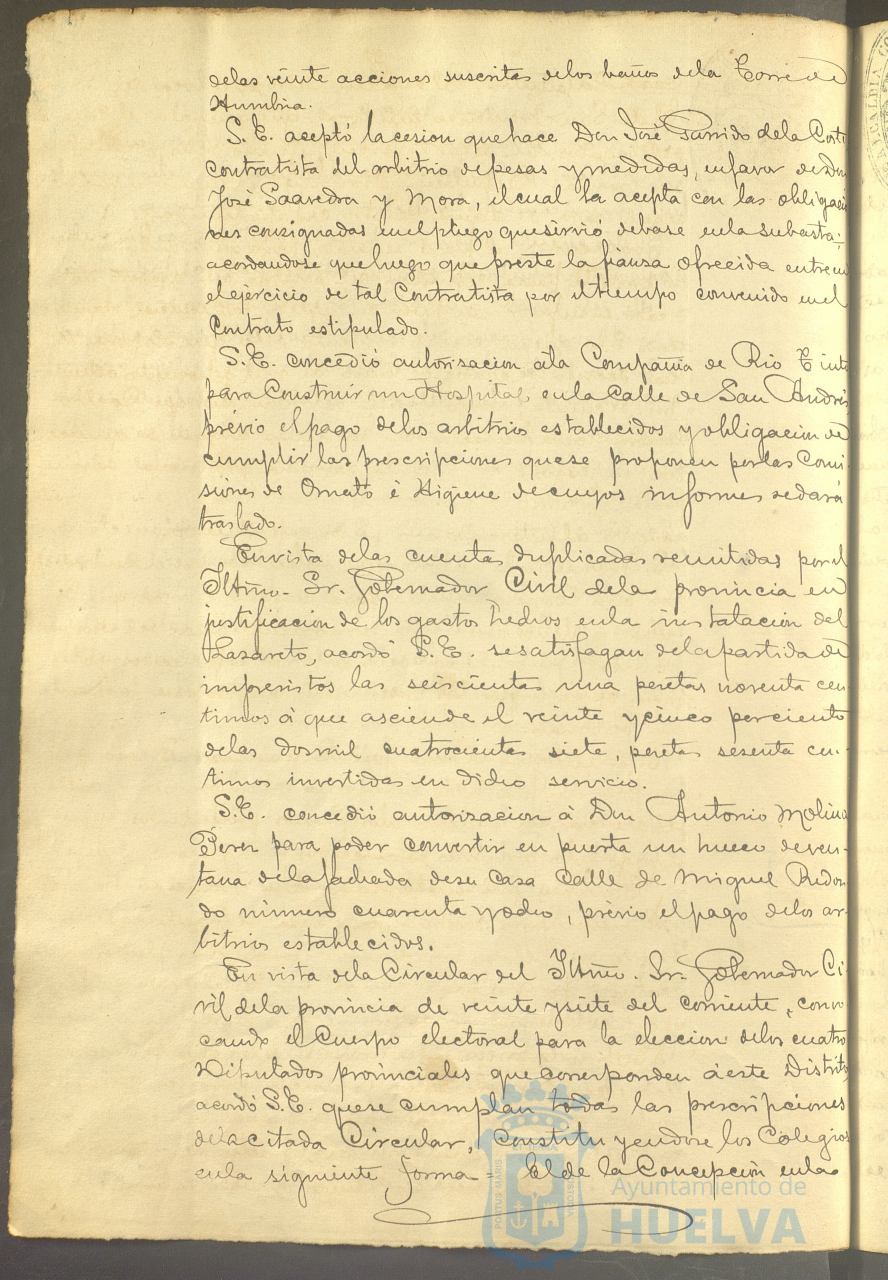 delas veinte acciones suscritas delos baños dela Torre de
Humbria.
S. E. aceptó la cesion que hace Don José Garrido dela Corte
contratista del arbitrio de pesas y medidas, en favor de Don
José Saavedra y Mora, el cual la acepta con las obligacio
nes consignadas en el pliego que sirvió de base en la subasta:
acordandose que luego que preste la fianza ofrecida entre en
el ejercicio de tal Contratista por el tiempo convenido en el
Contrato estipulado.
S. E. concedió autorisacion á la Compañia de Rio Tinto
para Construir un Hospital, en la Calle de San Andrés
prévio el pago delos arbitrios establecidos y obligacion de
cumplir las prescripciones que se proponen por las Comi-
siones de Ornato é Higiene de cuyos informes se dará
traslado.
En vista delas cuentas duplicadas remitidas por el
Iltmo. Sr. Gobernador Civil dela provincia en
justificacion de los gastos hechos en la instalacion del
Lazareto, acordó S. E. se satisfagan dela partida de
imprevistos las seiscientas una pesetas noventa cen-
timos á que asciende el veinte y cinco por ciento
delas dosmil cuatrocientas siete, pesetas sesenta cen-
timos invertidas en dicho servicio.
S. E. concedió autorizacion á Don Antonio Molina
Perez para poder convertir en puerta un hueco de ven-
tana dela fachada de su Casa Calle de Miguel Redon-
do número cuarenta y ocho, prévio el pago delos ar-
bitrios establecidos.
En vista dela Circular del Iltmo. Sr. Gobernador Ci-
vil dela provincia de veinte y siete del corriente, convo
cando el Cuerpo electoral para la eleccion delos cuatro
Diputados provinciales que corresponden á este Distrito,
acordó S. E. que se cumplan todas las prescripciones
dela citada Circular, Constituyendose los Colegios
en la siguiente forma = El de la Concepción en la
Ayuntamiento de
HUELVA
PORTUS MARIS